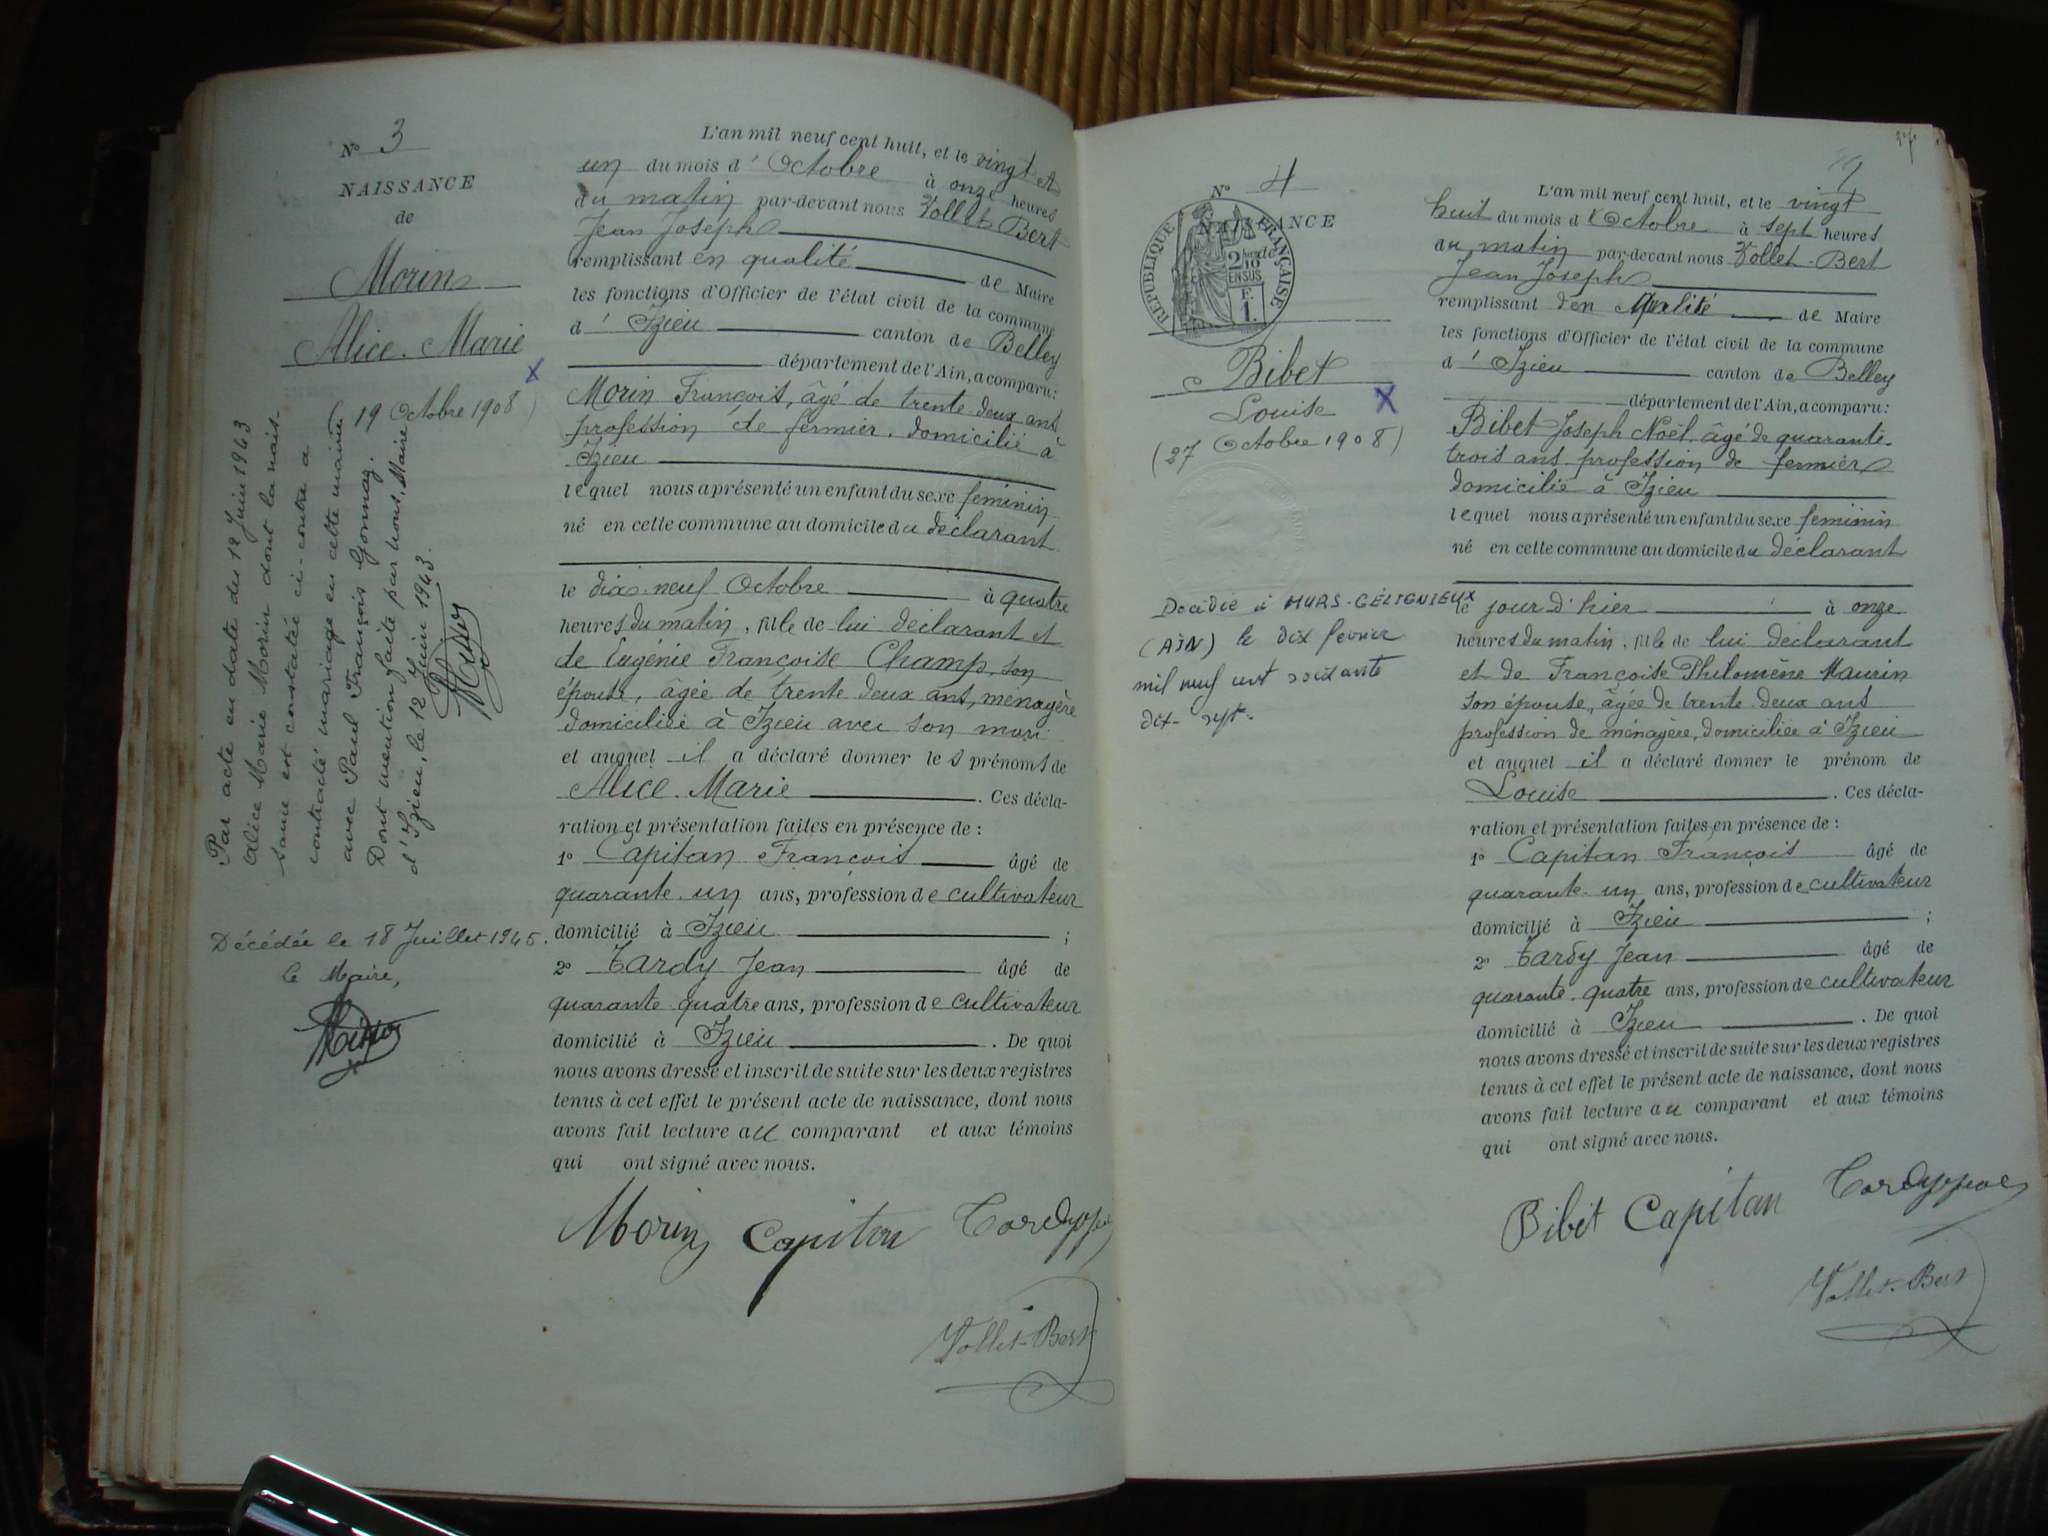 Nº 3
NAISSANCE
de
Morin
Alice. Marie
X
( 19 Octobre 1908 )
Par acte en date du 12 Juin 1943
Alice Marie Morin dont la nais-
sance est constatée ci-contre a
contracté mariage en cette mairie
avec Paul François Gonnaz.
Dont mention faite par nous, Maire
d'Izieu, le 12 Juin 1943.
Décédée le 18 Juillet 1945.
Le Maire,
L'an mil neuf cent huit, et le vingt et
un du mois d'Octobre à onze heures
du matin par-devant nous Vollet-Bert
Jean Joseph
remplissant en qualité de Maire
les fonctions d'Officier de l'état civil de la commune
d'Izieu canton de Belley
département de l'Ain, a comparu:
Morin François, âgé de trente-deux ans
profession de fermier, domicilié à
Izieu
lequel nous a présenté un enfant du sexe féminin
né en cette commune au domicile du déclarant
le dix-neuf Octobre à quatre
heures du matin, fille de lui déclarant et
de Eugénie Françoise Champ, son
épouse, âgée de trente deux ans, ménagère
domiciliée à Izieu avec son mari
et auquel il a déclaré donner les prénoms de
Alice. Marie. Ces décla-
ration et présentation faites en présence de :
1º Capitan François âgé de
quarante-un ans, profession de cultivateur
domicilié à Izieu ;
2º Tardy Jean âgé de
quarante-quatre ans, profession de cultivateur
domicilié à Izieu. De quoi
nous avons dressé et inscrit de suite sur les deux registres
tenus à cet effet le présent acte de naissance, dont nous
avons fait lecture au comparant et aux témoins
qui ont signé avec nous.
Morin Capitan
Vollet-Bert
27
Nº 4
NAISSANCE
de
RÉPUBLIQUE FRANÇAISE
2/10
EN SUS
F.
1.
Bibet
Louise
X
(27 Octobre 1908)
Décédée à MURS-GÉLIGNIEUX
(AIN) le dix février
mil neuf cent soixante
dix-sept.
L'an mil neuf cent huit, et le vingt
huit du mois d'Octobre à sept heures
du matin par-devant nous Vollet-Bert
Jean Joseph
remplissant d'en qualité de Maire
les fonctions d'Officier de l'état civil de la commune
d'Izieu canton de Belley
département de l'Ain, a comparu:
Bibet Joseph Noël âgé de quarante-
trois ans profession de fermier
domicilié à Izieu
lequel nous a présenté un enfant du sexe féminin
né en cette commune au domicile du déclarant
le jour d'hier à onze
heures du matin, fille de lui déclarant
et de Françoise Philomène Maurin
son épouse, âgée de trente-deux ans
profession de ménagère, domiciliée à Izieu
et auquel il a déclaré donner le prénom de
Louise. Ces décla-
ration et présentation faites en présence de :
1º Capitan François âgé de
quarante-un ans, profession de cultivateur
domicilié à Izieu ;
2º Tardy Jean âgé de
quarante-quatre ans, profession de cultivateur
domicilié à Izieu. De quoi
nous avons dressé et inscrit de suite sur les deux registres
tenus à cet effet le présent acte de naissance, dont nous
avons fait lecture au comparant et aux témoins
qui ont signé avec nous.
Bibet Capitan
Vollet-Bert